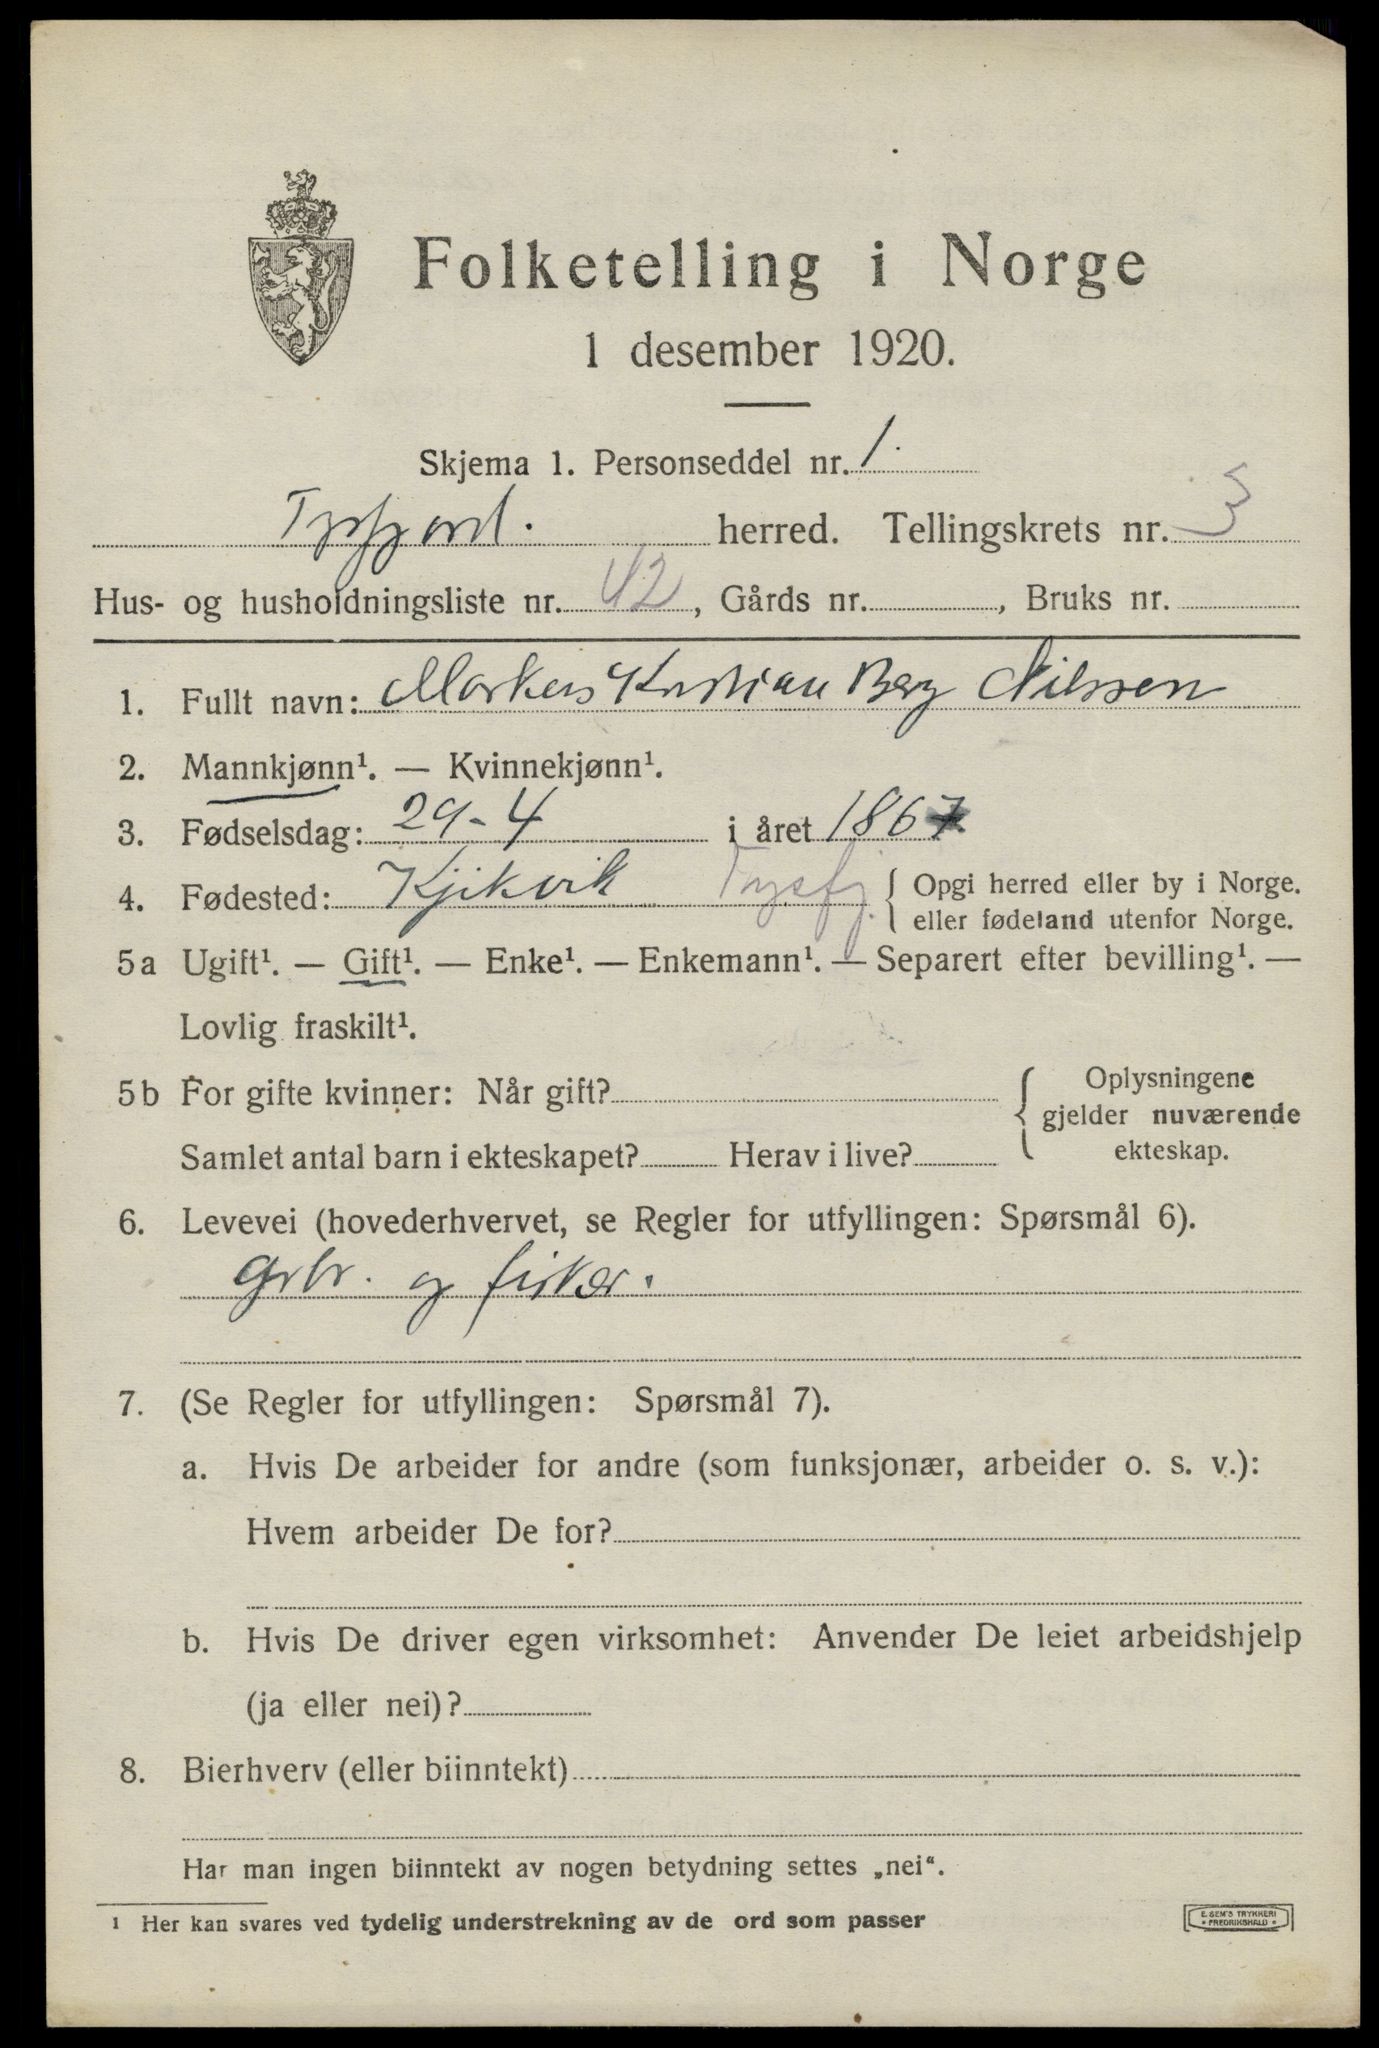 Folketelling i Norge
1 desember 1920.
Skjema 1. Personseddel nr. 1.
Tysfjord. herred. Tellingskrets nr. 3
Hus- og husholdningsliste nr. 42, Gårds nr. , Bruks nr.
1. Fullt navn: Markus Kristian Berg Nilssen
2. Mannkjønn¹. — Kvinnekjønn¹.
3. Fødselsdag: 29-4 i året 1867
4. Fødested: Kjikvik Tysfj. { Opgi herred eller by i Norge.
eller fødeland utenfor Norge.
5a Ugift¹. — Gift¹. — Enke¹. — Enkemann¹. — Separert efter bevilling¹. —
Lovlig fraskilt¹.
5b For gifte kvinner: Når gift? { Oplysningene
gjelder nuværende
ekteskap.
Samlet antal barn i ekteskapet? Herav i live?
6. Levevei (hovederhvervet, se Regler for utfyllingen: Spørsmål 6).
Grbr. og fisker.
7. (Se Regler for utfyllingen: Spørsmål 7).
a. Hvis De arbeider for andre (som funksjonær, arbeider o. s. v.):
Hvem arbeider De for?
b. Hvis De driver egen virksomhet: Anvender De leiet arbeidshjelp
(ja eller nei)?
8. Bierhverv (eller biinntekt)
Har man ingen biinntekt av nogen betydning settes „nei“.
¹ Her kan svares ved tydelig understrekning av de ord som passer
E. SEM'S TRYKKERI
• FREDRIKSHALD •